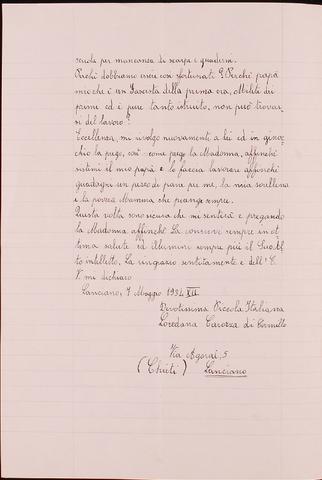 scuola per mancanza di scarpe e quaderni.
Perchè dobbiamo essere così sfortunati? Perchè papà
mio che è un Fascista della prima ora, Milite dei
primi ed è pure tanto istruito, non può trovar-
si del lavoro?
Eccellenza, mi rivolgo nuovamente a lei ed in ginoc-
chio la prego, così come prego la Madonna, affinchè
sistimi il mio papà e lo faccia lavorare affinchè
guadagni un pezzo di pane per me, la mia sorellina
e la povera Mamma che piange sempre.
Questa volta sono sicura che mi sentirà e pregando
la Madonna affinchè La conservi sempre in ot
tima salute ed illumini sempre più il Suo
to intelletto, La ringrazio sentitamente e dell' E.
V. mi dichiaro
Lanciano, 7 Maggio 1934 XII
Devotissima Piccola Italiana
Loredana Carozza di Camillo
Via Agorai, 5
(Chieti) Lanciano